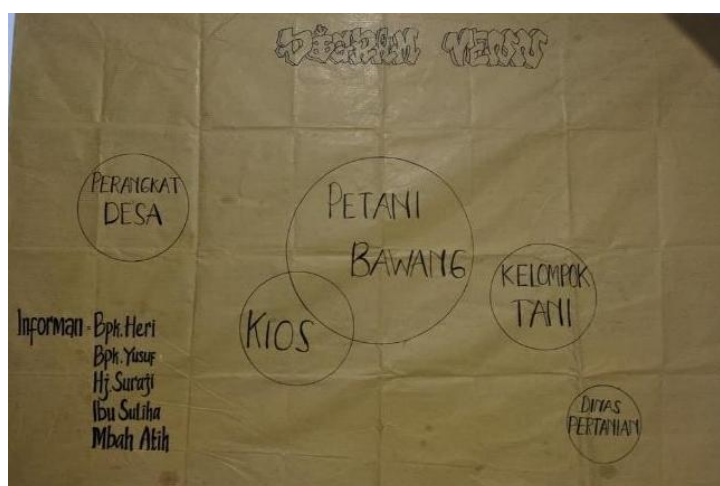 DIAGRAM VENN
PERANGKAT
DESA
PETANI
BAWANG
KIOS
KELOMPOK
TANI
DINAS
PERTANIAN
Informan = Bpk. Heri
Bpk. Yusuf
Hj. Suraji
Ibu Suliha
Mbah Atih